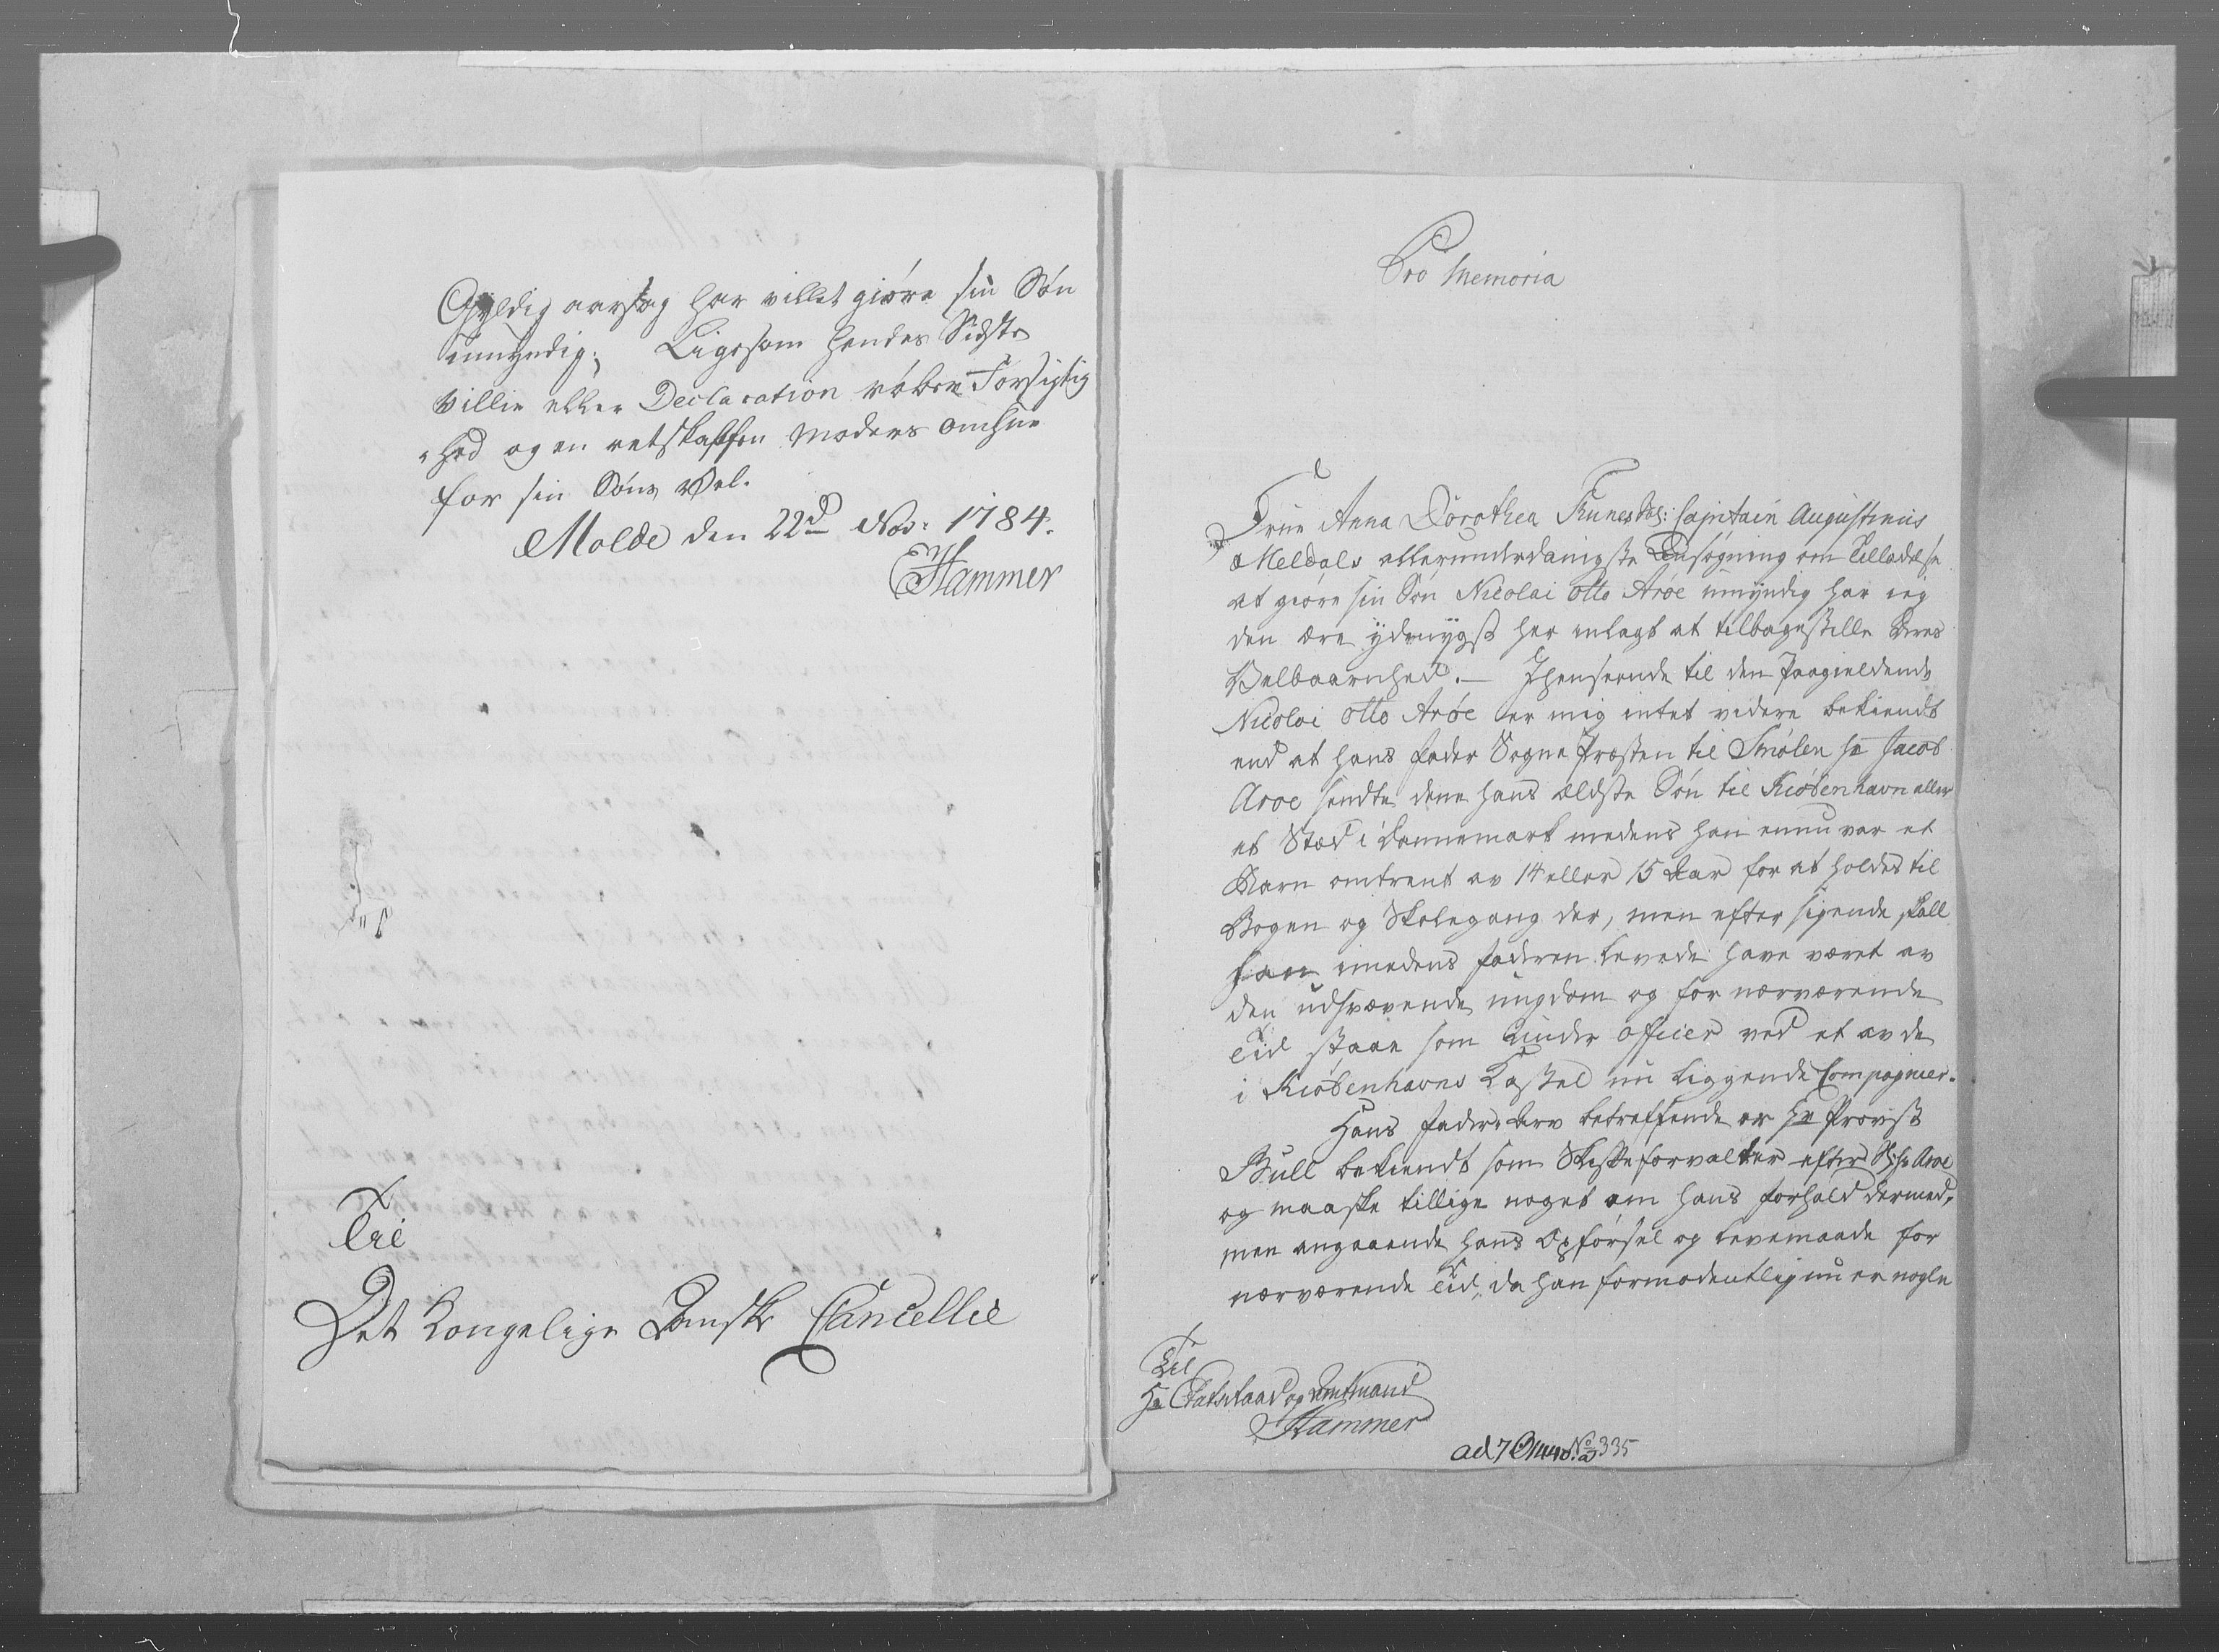 Gyldig aarsag har villet giøre sin Søn
umyndig; Ligesom hendes Sidste
villie eller Declaration røber Forsigtig
-hed og en retskaffen Moders omhue
for sin Søns Vel.
Molde den 22de Nov: 1784.
Hammer
Til
Det Kongelige Danske Cancellie
Pro Memoria
Frue Anna Dorothea Capitain Augustinus
Meldals allerunderdanigste Ansøgning om Tilladelse
at giøre sin Søn Nicolai Otto Arøe umyndig har ieg
den ære ydmygst her indlagt at tilbagestille Deres
Velbaarenhed. — Ihenseende til den Paagieldende
Nicolai Otto Arøe er mig intet videre bekiendt
end at hans fader Sogne Præsten til Smølen hr Jacob
Aroe sendte dene hans ældste Søn til Kiøbenhavn eller
et Stæd i Dannemark medens han ennu var et
Barn omtrent av 14 eller 15 Aar for at holdes til
Bogen og Skolegang der, men efter sigende skall
han imedens faderen levede have været av
den udsvævende ungdom og for nærværende
Tid staae som Under officer ved et av de
i Kiøbenhavns Castel nu liggende Compagnier.
Hans Fadere Arv betreffende er Hr Provst
Bull bekiendt som Skifteforvalter efter Aroe
og maaske tillige noget om hans forhold dermed,
men angaaende hans Opførsel og levemaade for
nærværende Tid, da han formodentlig nu er nogle
Til
Hr Etatsraad og Amtmand
Hammer
ad No 335